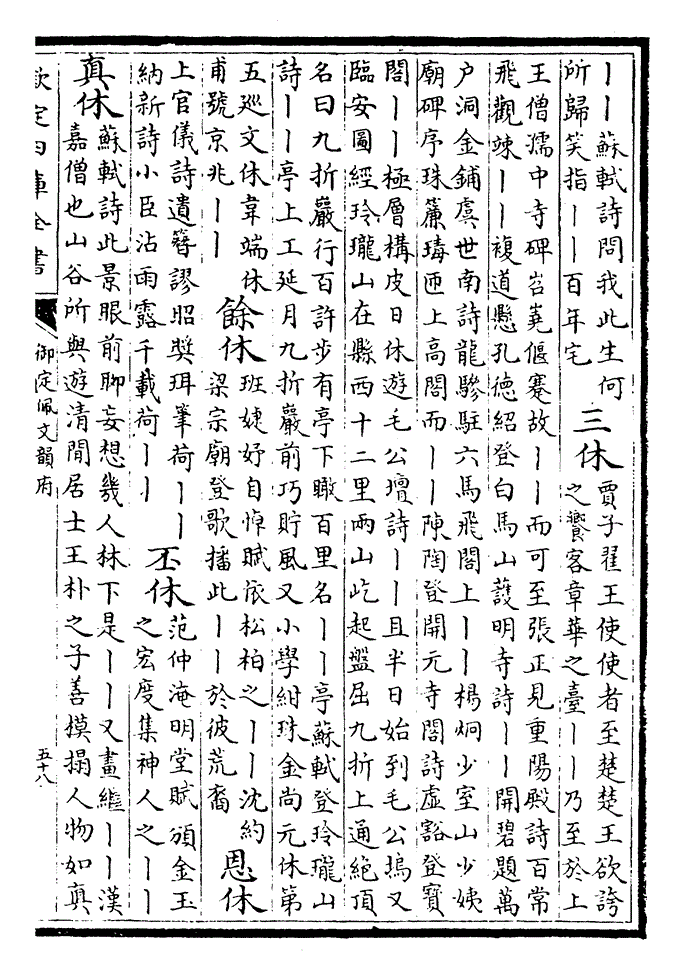 丨丨蘇軾詩問我此生何
所歸笑指丨丨百年宅
三休
賈子翟王使使者至楚楚王欲誇
之饗客章華之臺丨丨乃至於上
王僧孺中寺碑岧嶤偃蹇故丨丨而可至張正見重陽殿詩百常
飛觀竦丨丨複道懸孔德紹登白馬山護明寺詩丨丨開碧題萬
户洞金鋪虞世南詩龍驂駐六馬飛閣上丨丨楊炯少室山少姨
廟碑序珠簾瑇匝上高閣而丨丨陳陶登開元寺閣詩虛豁登寶
閣丨丨極層構皮日休遊毛公壇詩丨丨且半日始到毛公塢又
臨安圖經玲瓏山在縣西十二里兩山屹起盤屈九折上通絶頂
名曰九折巖行百許步有亭下瞰百里名丨丨亭蘇軾登玲瓏山
詩丨丨亭上工延月九折巖前巧貯風又小學紺珠金尚元休第
五廵文休韋端休
甫號京兆丨丨
餘休
班婕妤自悼賦依松柏之丨丨沈約
梁宗廟登歌播此丨丨於彼荒裔
恩休
上官儀詩遺簪謬昭奬珥筆荷丨丨
納新詩小臣沾雨露千載荷丨丨
丕休
范仲淹明堂賦頒金玉
之宏度集神人之丨丨
真休
蘇軾詩此景眼前聊妄想幾人林下是丨丨又畫繼丨丨漢
嘉僧也山谷所與遊清閒居士王朴之子善模搨人物如真
欽定四庫全書
御定佩文韻府
五十八